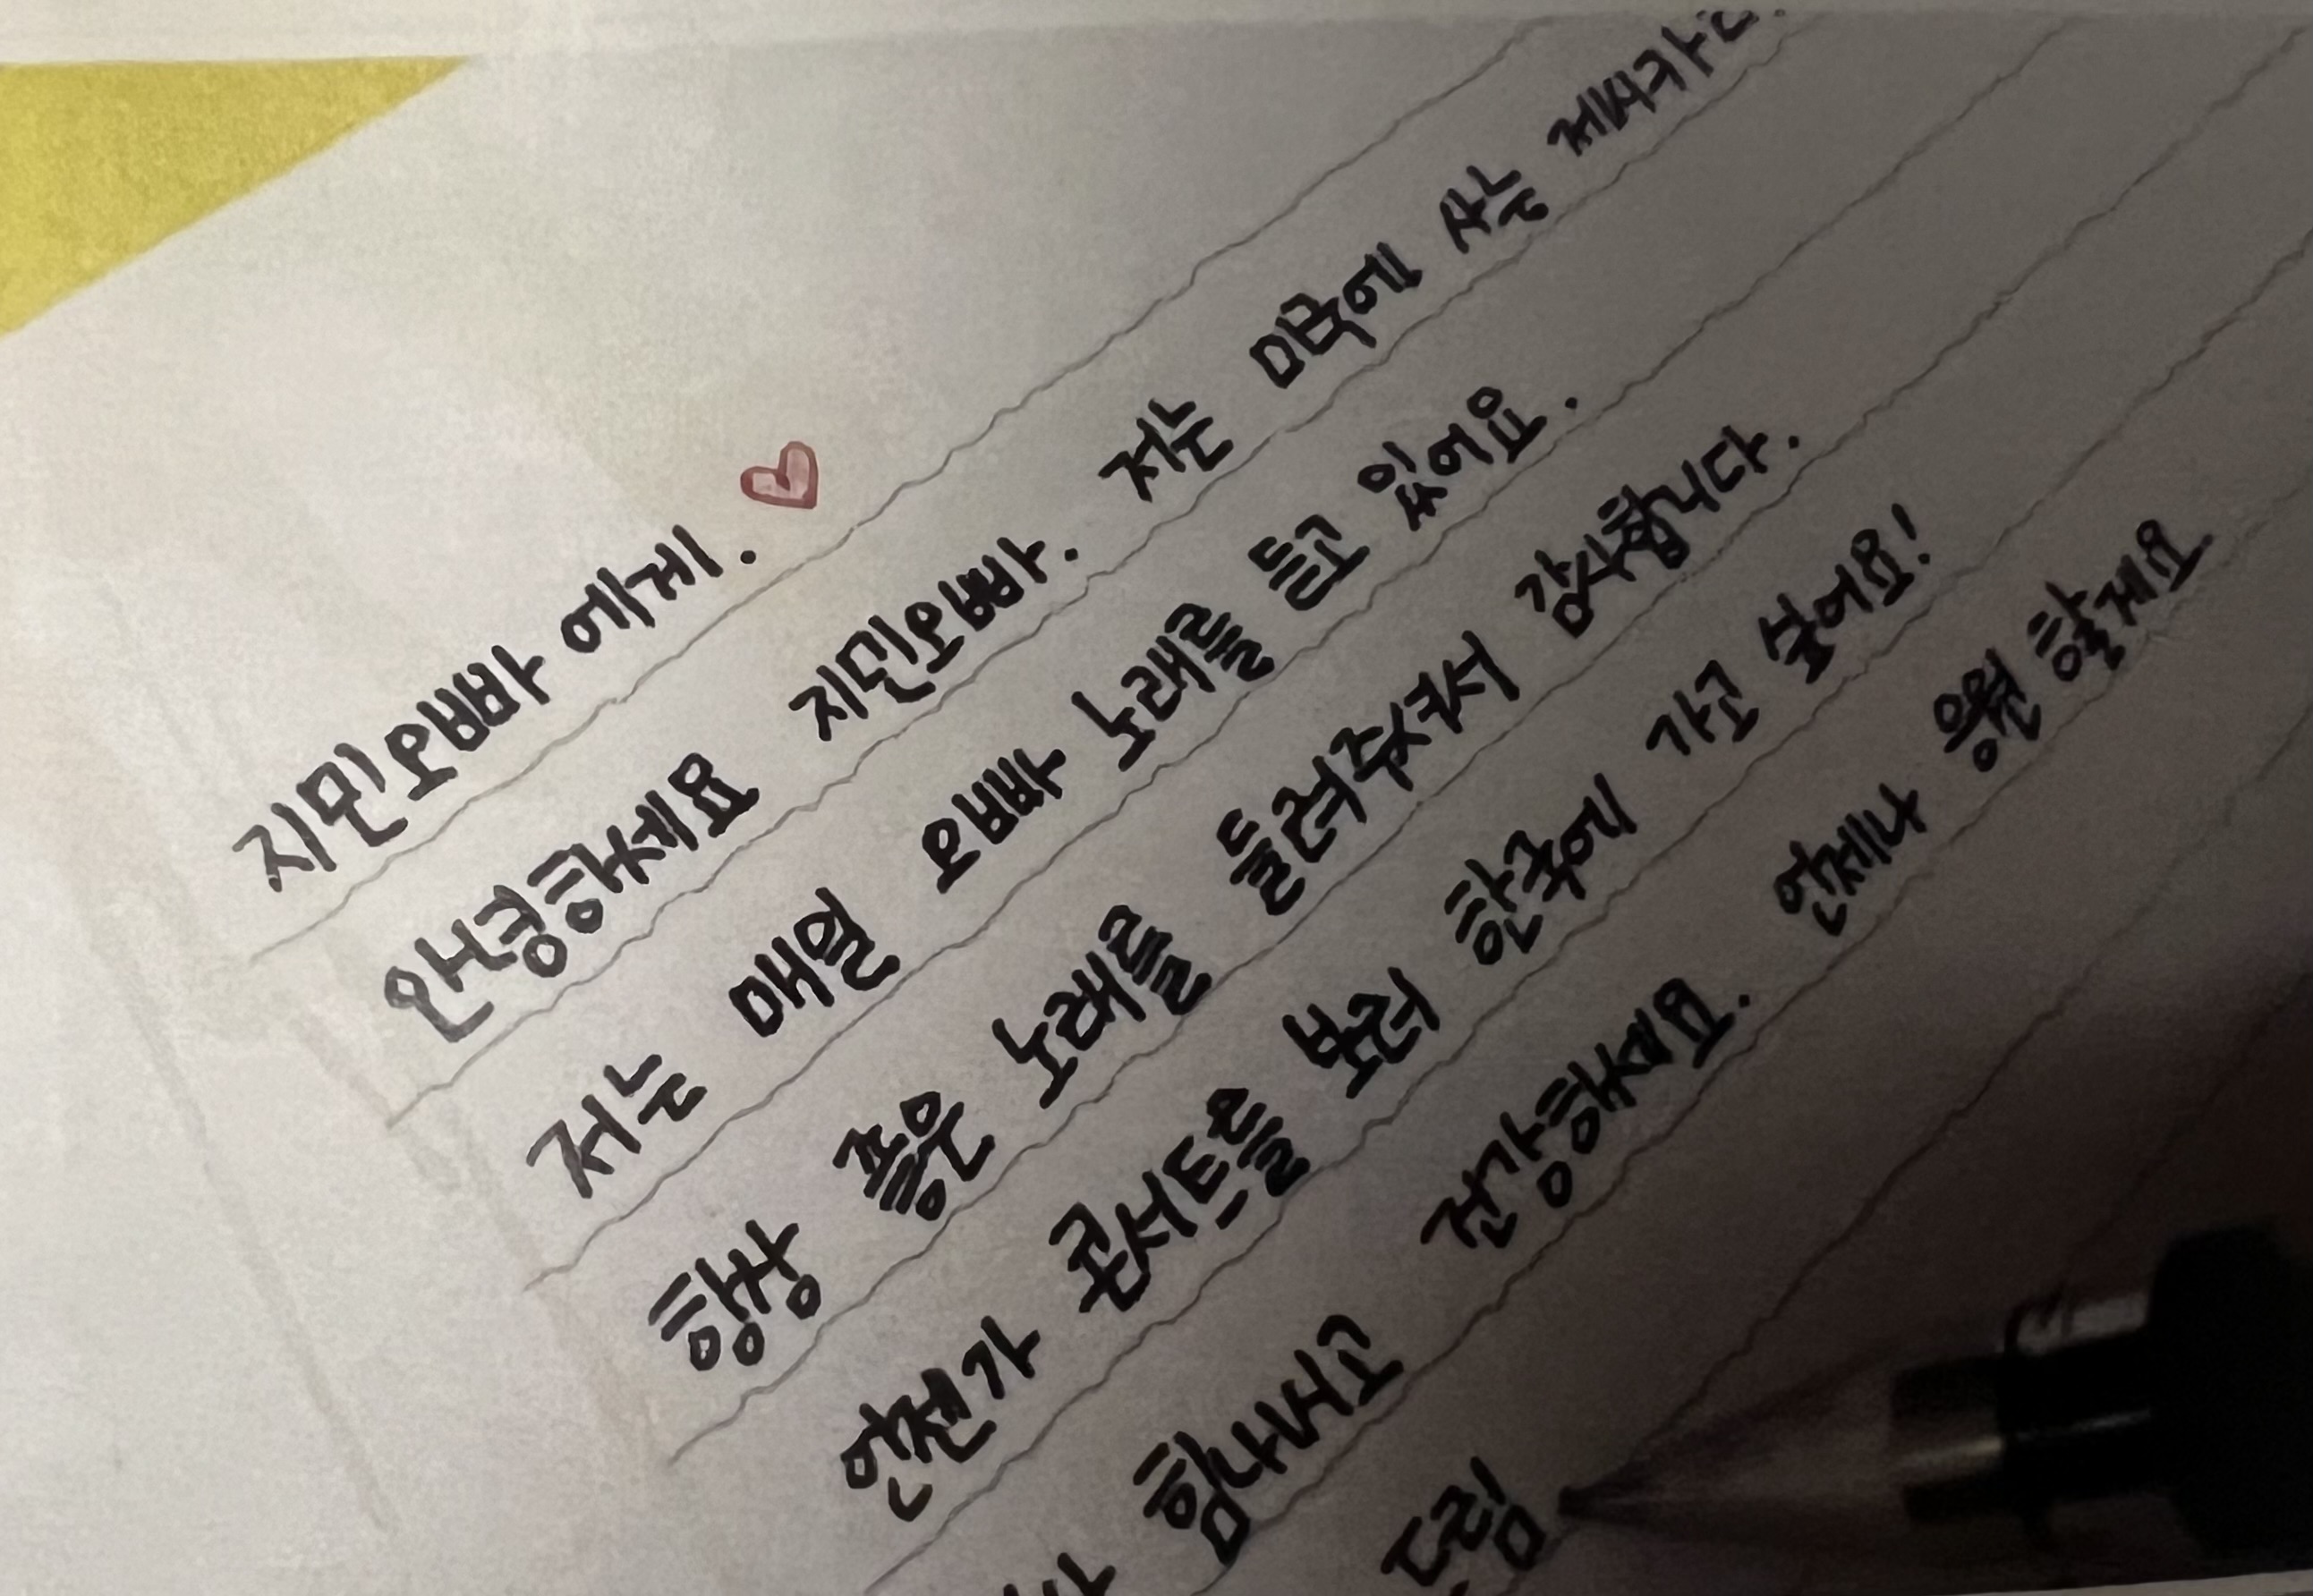 지민오빠 에게.
안녕하세요 지민오빠. 저는 미국에 사는 제시카
저는 매일 오빠 노래를 듣고 있어요.
항상 좋은 노래를 들려주셔서 감사합니다.
언젠가 콘서트를 보러 한국에 가고 싶어요!
힘내시고 건강하세요. 언제나 응원 할게요
드림